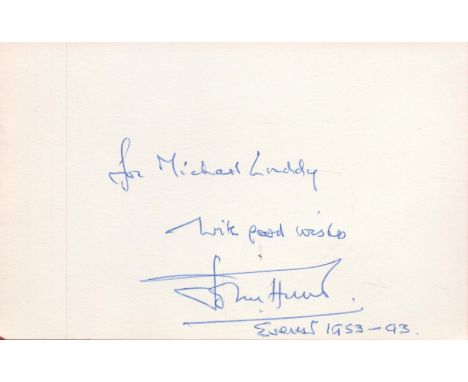 for Michael Luddy
With good wishes
John Hunt.
Everest 1953-93.